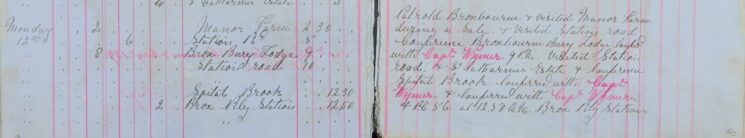 4 St Catharines Estate 5
Monday 2 Manor Farm 2 30
12th 6 Station Rd 5
8 Brox Bury Lodge 9
Station road 10
Spital Brook 12.30
2 Brox Rly Station 12.50
Patrold Broxbourne & visited Manor Farm
during a Daly & Visited Station road
& Conferrine Broxbourne Bury Lodge
with Capt. Wymer. 9 PM. Visited Station
road. & St Catharines Estate & Conferrine
Spital Brook Conferrd with Capt.
Wymer. & Conferrd with Capt Wymer.
& PC 56 at 12.50 AM Brox Rly Station